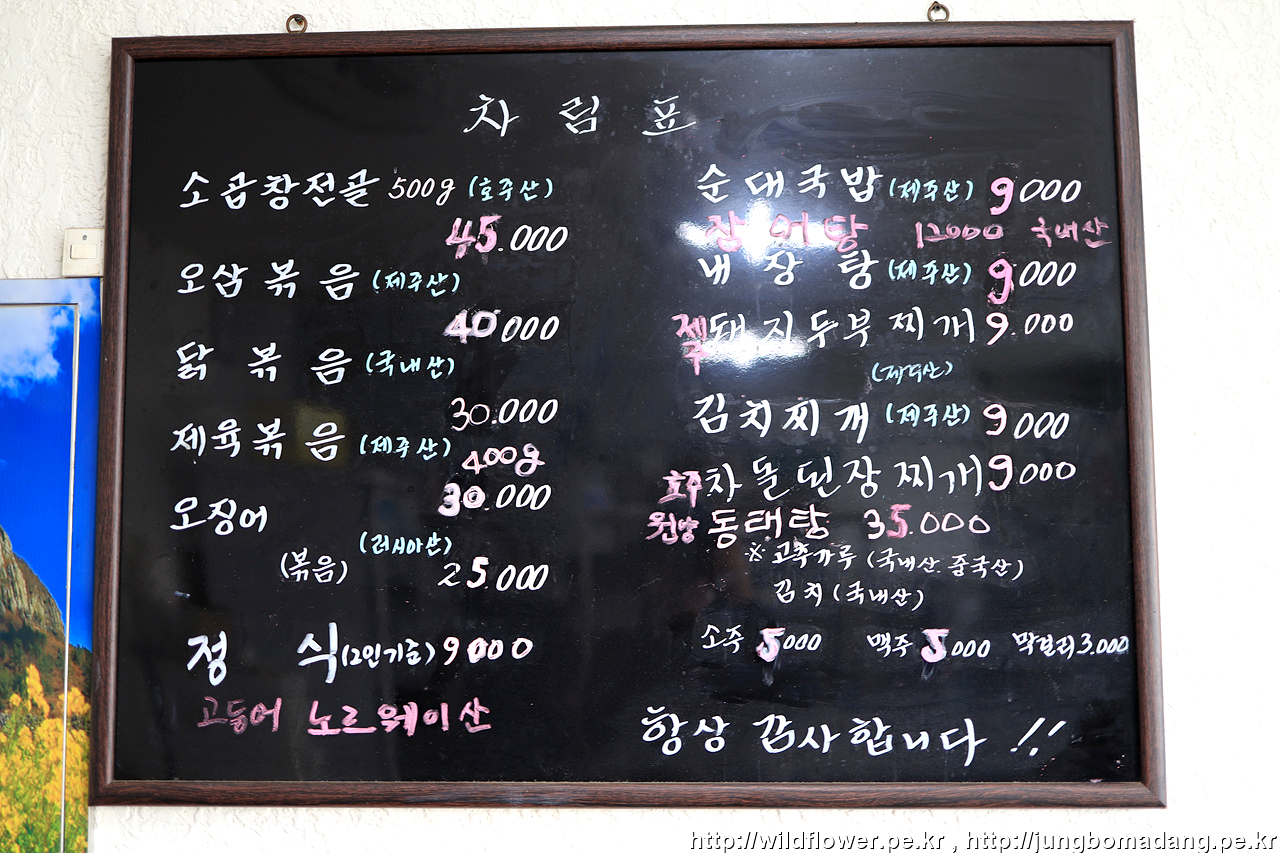 차림표
소곱창전골 500g (호주산)
45.000
오삼볶음 (제주산)
40000
닭볶음 (국내산)
30.000
제육볶음 (제주산) 400g
30.000
오징어
(볶음) (러시아산)
25.000
정식 (2인기준) 9000
고등어 노르웨이산
순대국밥 (제주산) 9000
장어탕 12000 국내산
내장탕 (제주산) 9000
돼지두부찌개 9.000
(제주산)
김치찌개 (제주산) 9000
호주 차돌된장찌개 9000
원양 동태탕 35.000
※ 고추가루 (국내산. 중국산)
김치 (국내산)
소주 5000 맥주 5000 막걸리 3.000
항상 감사합니다 !!
http://wildflower.pe.kr , http://jungbomadang.pe.kr